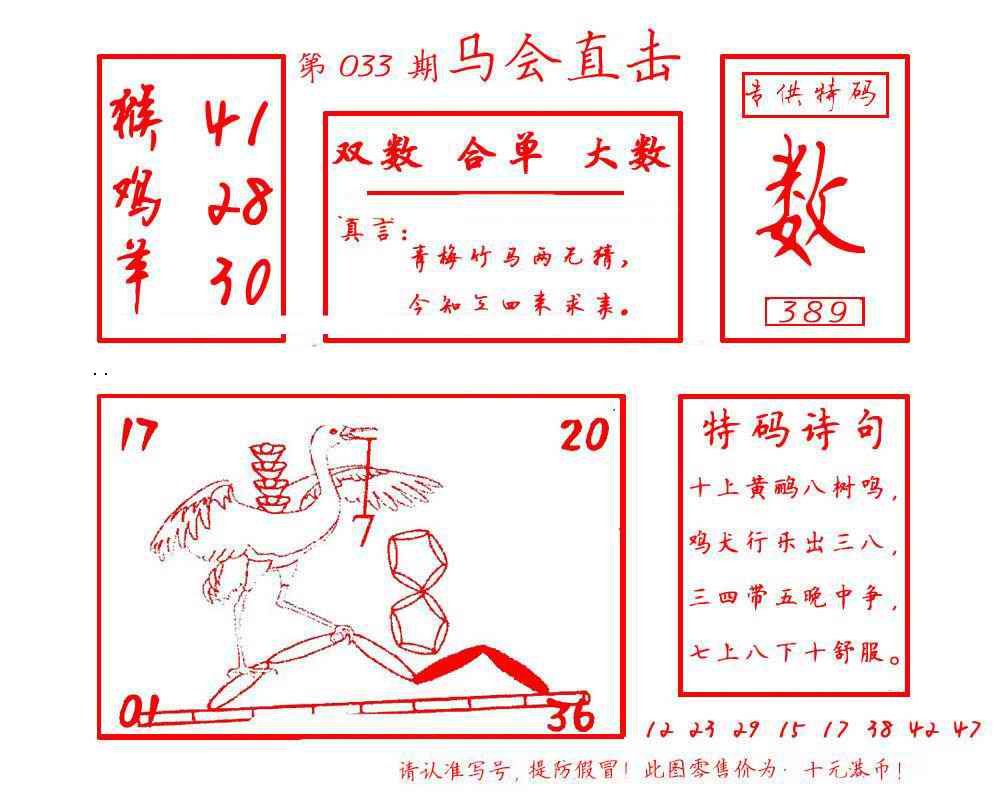 第 033 期 马会直击
猴 41
鸡 28
羊 30
双数 合单 大数
真言:
青梅竹马两无猜,
今知三四来求亲。
专供特码
数
389
17
20
7
01
36
特码诗句
十上黄鹂八树鸣,
鸡犬行乐出三八,
三四带五晚中争,
七上八下十舒服。
12 23 29 15 17 38 42 47
请认准写号,提防假冒!此图零售价为· 十元港币!